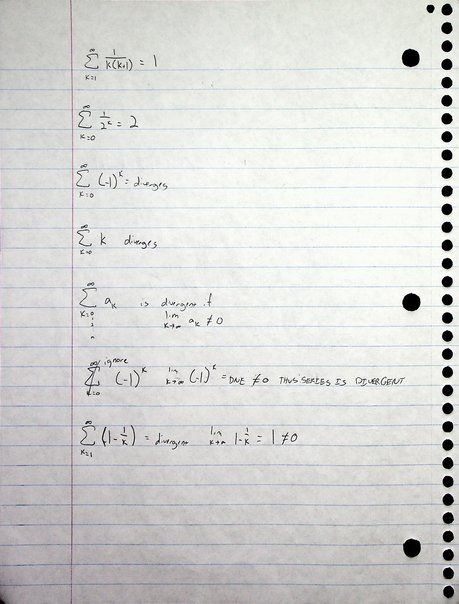 ∞ ∑ k=1 1/k(k+1) = 1
∞ ∑ k=0 1/2^k = 2
∞ ∑ k=0 (-1)^k = diverges
∞ ∑ k=0 k diverges
∞ ∑ k=0 a_k is divergent if
lim k→∞ a_k ≠ 0
ignore
∞ ∑ k=0 (-1)^k lim k→∞ (-1)^k = DNE ≠ 0 THUS SERIES IS DIVERGENT
∞ ∑ k=1 (1 - 1/k) = divergent lim k→∞ 1 - 1/k = 1 ≠ 0